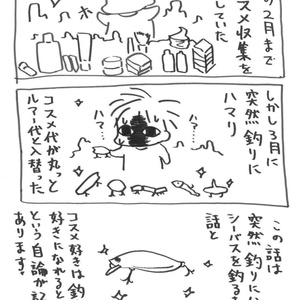 の2月まで
スメ収集を
していた
しかし3月に
突然釣りに
ハマリ
コスメ代が丸っと
ルアー代と入替った
この話は
突然釣りに
シーバスを釣る
話と
コスメ好きは釣
好きになれると
という自論が
あります。